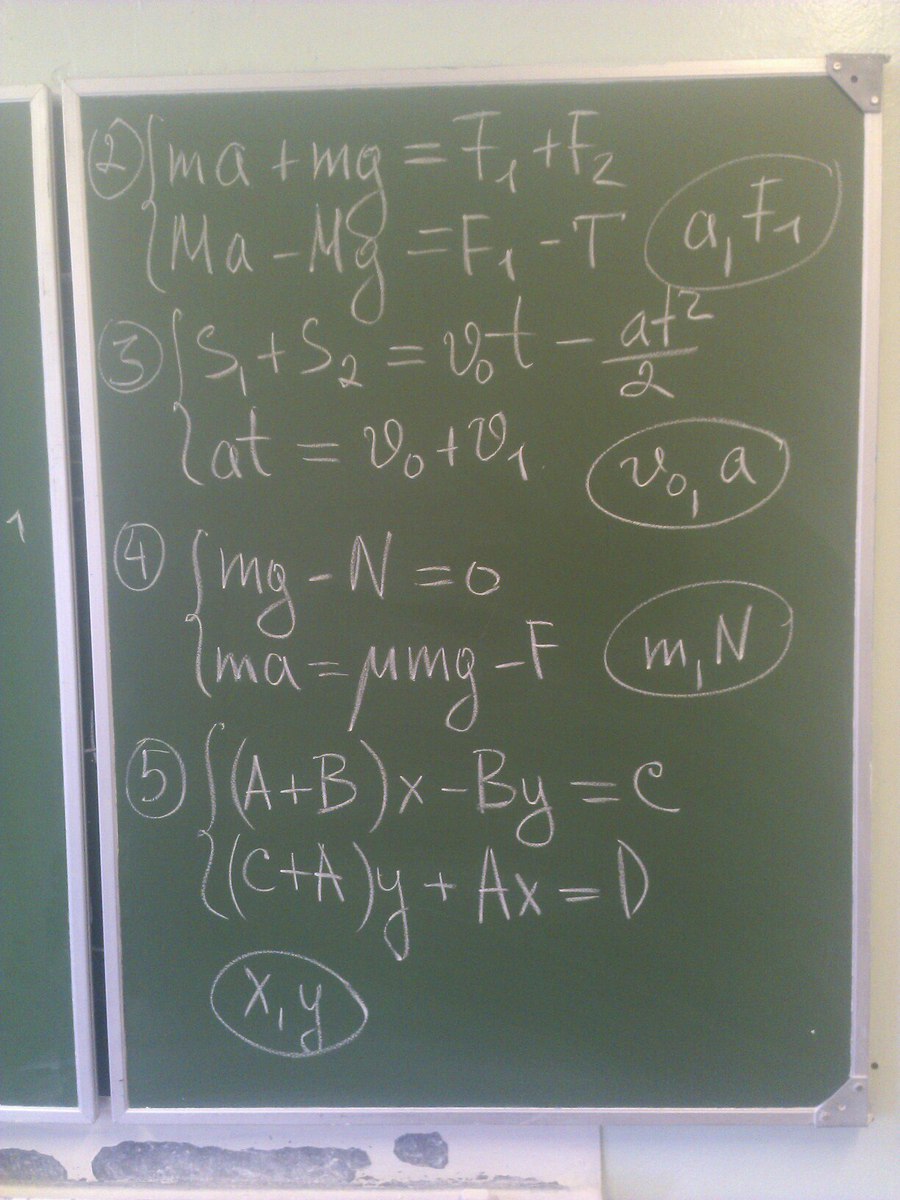 1
② { ma + mg = F₁ + F₂
Ma - Mg = F₁ - T
a, F₁
③ { S₁ + S₂ = v₀t - at²/2
at = v₀ + v₁
v₀, a
④ { mg - N = 0
ma = μmg - F
m, N
⑤ { (A+B)x - By = C
(C+A)y + Ax = D
x, y